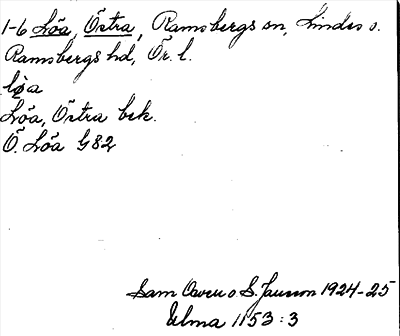 1-6 Löa, Östra, Ramsbergs sn, Lindes o.
Ramsbergs hd, Ör. l.
Löa, Östra bek.
Ö. Löa G82
Sam Owen o S. Jansson 1924-25
Ulma 1153:3